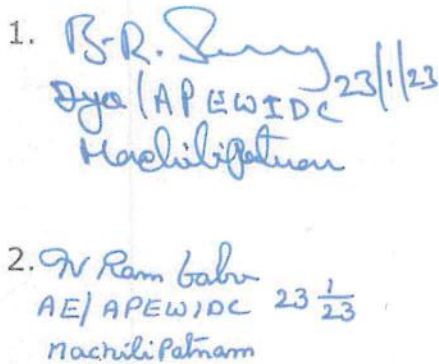 1. B.R.
Dye/APEWIDC 23/1/23
Machilipatnam
2. N Ram babu
AE/APEWIDC 23 1/23
Machilipatnam